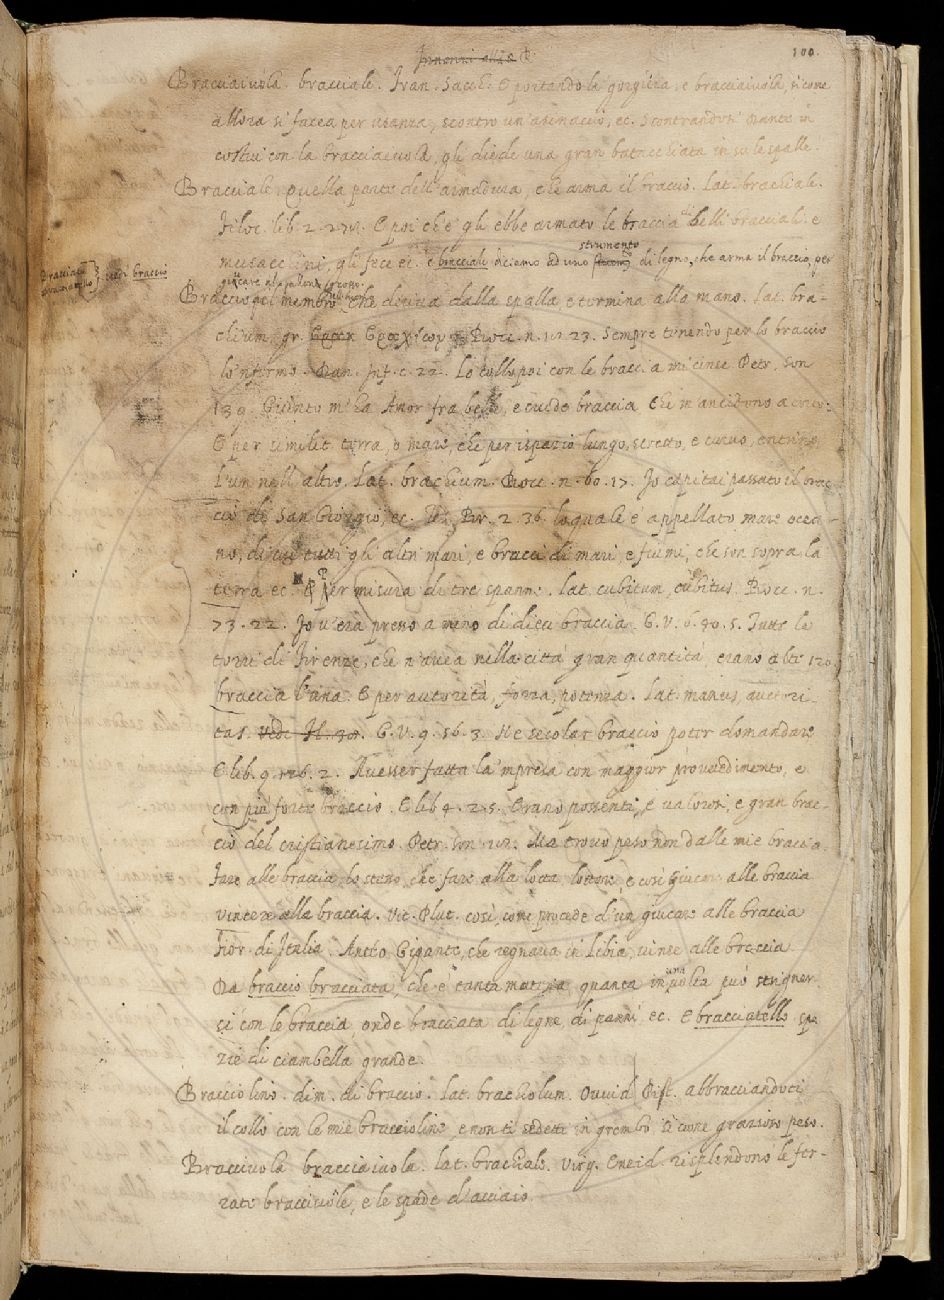 100.
Bracciaiuola. bracciale. Fran. Sacch. E portando la gorgiera, e bracciaiuola, sicome
allora si facea per usanza, scontrò un asinaccio, ec. Scontrandosi Dante in
costui con la bracciaiuola, gli diede una gran batacchiata in su le spalle.
Bracciale. Quella parte dell'armadura, che arma il braccio. Lat. brachiale.
Filoc. lib. 2. E poi che gli ebbe armato le braccia di belli bracciali e
musacchini, gli fece ec. e bracciali diciamo ad uno strumento di legno, che arma il braccio, per
giucare al pallone
Bracciatello vedi braccio
Braccio membro che diriva dalla spalla, e termina alla mano. Lat. bra-
chium. gr. Bocc. n. 12. 23. Sempre tenendo per lo braccio
lo'nfermo. Dan. Inf. c. 22. Lo collo poi con le braccia mi cinse Petr. Son
139. Quinto m'ha Amor fra belle, e crude braccia Che m'ancidono a torto:
E per similit. terra, o mare, che per ispazio lungo, stretto, e curvo, entrino
l'un nell'altro. Lat. brachium. Bocc. n. 60. 17. Io capitai passato il brac-
cio di San Giorgio, ec. 2. 36. laquale è appellato mare ocea-
no, di cui tutti gli altri mari, e bracci di mari, e fiumi, che son sopra la
terra ec. E per misura di tre spanne. Lat. cubitum, cubitus. Bocc. n.
73. 22. Io v'era presso a meno di dieci braccia. G. V. 6. 40. 5. Tutte le
torri di Firenze, che n'avea nella città gran quantità, erano alte 120
braccia l'una. E per autorità, forza, potenza. Lat. manus, auctori-
tas. G. V. 9. 56. 3. Ne secolar braccio poter domandare
E lib. 9. 2. Avesser fatta la'mpresa con maggior provvedimento, e
con più forte braccio. E lib 4. 2. 5. Erano possenti, e valorosi, e gran brac-
cio del cristianesimo. Petr. son. Ma trovo peso non dalle mie braccia.
Fare alle braccia, lo steno, che fare alla lotta, lottare, e così giucare alle braccia
vincere alla braccia. Vit. Plut. così, come procede d'un giucare alle braccia
Fior. di Italia. Anteo Gigante, che regnava in Libia, vinse alle braccia
Da braccio bracciata, che è tanta materia quanta in una volta può strigner
si con le braccia onde bracciata di legne, di panni ec. E bracciatello spe
zie di ciambella grande.
Bracciolino. dim. di braccio. Lat. brachiolum. Ovvid. Pist. abbracciandoti
il collo con le mie bracciolina, e non ti sedetti in grembo. O come grazioso peso.
Bracciuola bracciaiuola. Lat. brachiale. Virg. Eneid. risplendono le fer-
rate bracciuole, e le spade d'acciaio.